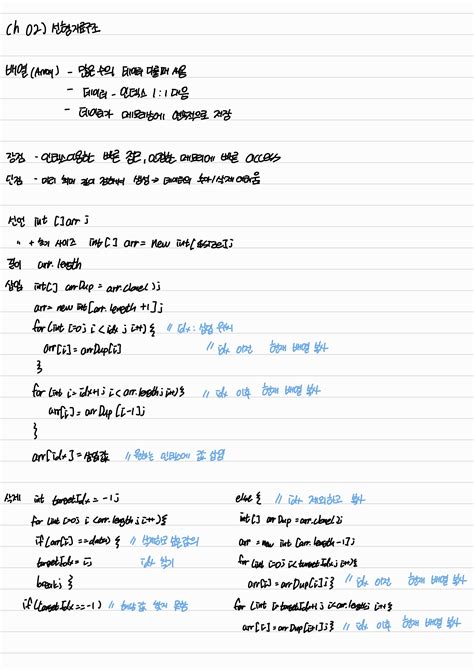 Ch 02) 선형자료구조
배열 (Array) - 많은 수의 데이터 다룰 때 사용
- 데이터 - 인덱스 1:1 대응
- 데이터가 메모리상에 연속적으로 저장
장점 - 인덱스 이용하는 빠른 접근, 데이터에 빠른 access
단점 - 미리 최대 길이 정해서 생성 → 데이터의 추가/삭제 어려움
선언 int []arr;
" + 초기 사이즈 int[] arr = new int[size];
길이 arr.length
삽입 int[] arrDup = arr.clone();
arr = new int[arr.length +1];
for (int i=0; i < idx; i++) { // idx : 삽입 위치
arr[i] = arrDup[i] // idx 이전 현재 배열 복사
}
for (int i=idx+1; i < arr.length; i++) { // idx 이후 현재 배열 복사
arr[i] = arrDup [i-1];
}
}
arr[idx] = 삽입값 // 원하는 인덱스에 값 삽입
삭제 int targetIdx = -1;
for (int i=0; i < arr.length; i++) {
if (arr[i] == data) { // 삭제하고 싶은 값의
targetIdx = i; idx 찾기
break; }
if (targetIdx == -1) // 해당 값 찾지 못함
else { // idx 제외하고 복사
int[] arrDup = arr.clone();
arr = new int [arr.length -1];
for (int i=0; i < targetIdx; i++)
arr[i] = arrDup[i]; } // idx 이전 현재 배열 복사
for (int i=targetIdx+1; i<arr.length; i++)
arr[i] = arrDup[i+1]; } // idx 이후 현재 배열 복사